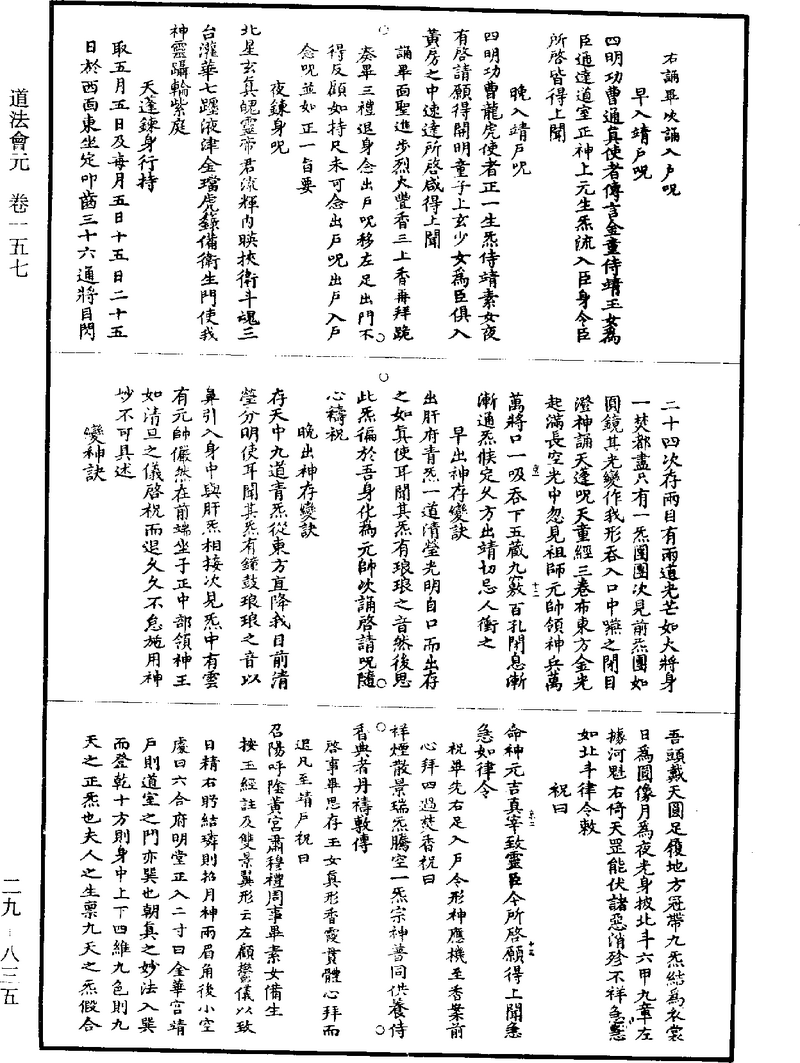 道法會元　卷一五七
二九－八三五
右誦畢次誦入戶呪
早入靖戶呪
四明功曹通真使者傳言金童侍靖玉女為
臣通達道室正神上元生炁流入臣身令臣
所啓皆得上聞
晚入靖戶呪
四明功曹龍虎使者正一生炁侍靖素女夜
有啓請願得開明童子上玄少女為臣俱入
黃房之中速達所啓咸得上聞
誦畢面聖進步烈火豐香三上香再拜跪
奏畢三禮退身念出戶呪移左足出門不
得反顧如持尺未可念出戶呪出戶入戶
念呪並如正一旨要
夜鍊身呪
北星玄真魄靈帝君流輝內暎挾衛斗魂三
台灌華七躔液津金璫虎籙備衛生門使我
神靈躡輪紫庭
天蓬鍊身行持
取五月五日及每月五日十五日二十五
日於西面東坐定叩齒三十六通將目閃
二十四次存兩目有兩道光芒如大將身
一焚都盡只有一炁團團次見前炁團如
圓鏡其光變作我形吞入口中嚥之閉目
澄神誦天蓬呪天童經三卷布東方金光
起滿長空光中忽見祖師元帥領神兵萬
萬將口一吸吞下五藏九竅百孔閉息漸
漸通炁候定久方出靖切忌人衝之
早出神存變訣
出肝府青炁一道清瑩光明自口而出存
之如真使耳聞其炁有琅琅之音然後思
此炁徧於吾身化為元帥次誦啓請呪隨
心禱祝
晚出神存變訣
存天中九道青炁從東方直降我目前清
瑩分明使耳聞其炁有鐘鼓琅琅之音以
鼻引入身中與肝炁相接次見炁中有雲
有元帥儼然在前端坐子正中部領神王
如清旦之儀啓祝而退久久不怠施用神
妙不可具述
變神訣
吾頭戴天圓足履地方冠帶九炁結為衣裳
日為圓像月為夜光身披北斗六甲九章左
據河魁右倚天罡能伏諸惡消殄不祥急急
如北斗律令敕
祝曰
命神元吉真宰致靈臣今所啓願得上聞急
急如律令
祝畢先右足入戶令形神應機至香案前
心拜四過焚香祝曰
祥煙散景瑞炁騰空一炁宗神普同供養侍
香典者丹禱敷傳
啓事畢思存玉女真形香霞貫體心拜而
退凡至靖戶祝曰
召陽呼陰黃宮肅穆禮周事畢素女備生
按玉經註及雙景翼形云左顧鬱儀以致
日精右眄結璘則招月神兩眉角後小空
處曰六合府明堂正入二寸曰金華宮靖
戶則道室之門亦巽也朝真之妙法入巽
而登乾十方則身中上下四維九色則九
天之正炁也夫人之生禀九天之炁假合